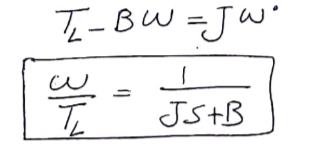 T_L - Bω = Jω̇
ω/T_L = 1/(JS+B)